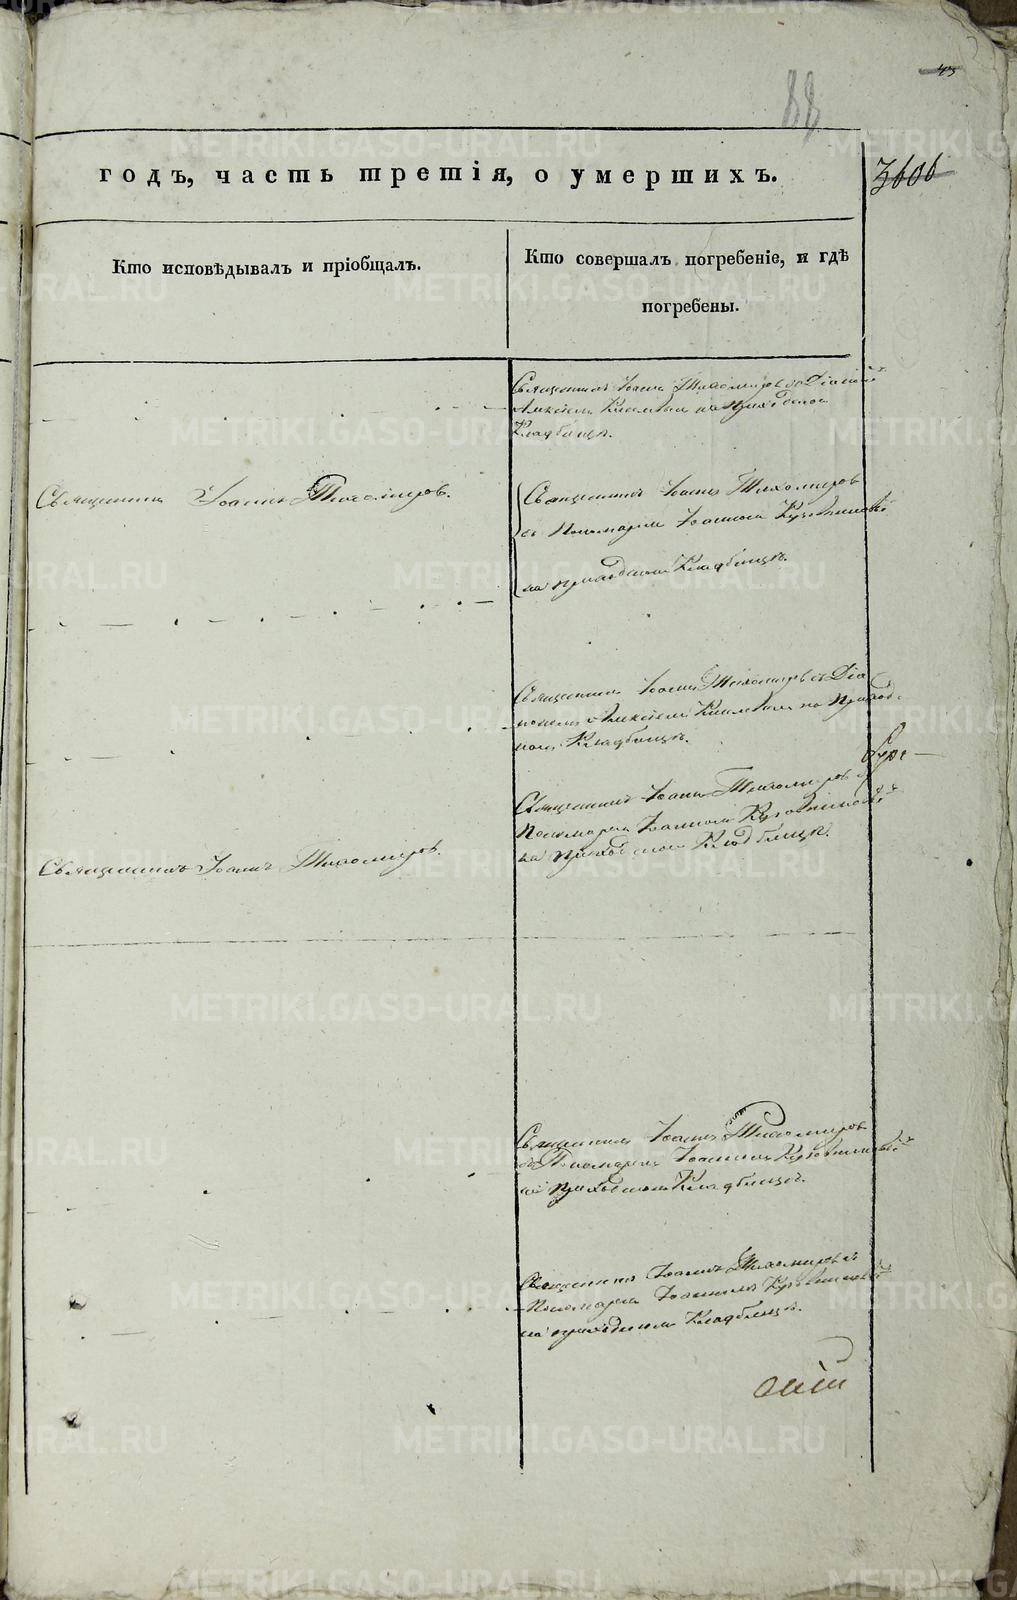 45
88
годъ, часть третія, о умершихъ.
3606
Кто исповѣдывалъ и пріобщалъ.
Кто совершалъ погребеніе, и гдѣ
погребены.
Священникъ Іоаннъ Тихомировъ съ Діакономъ
на Приходскомъ
Кладбищѣ.
Священникъ Іоаннъ Тихомировъ.
Священникъ Іоаннъ Тихомировъ
съ Пономаремъ Іоанномъ
на приходскомъ Кладбищѣ.
Священникъ Іоаннъ Тихомировъ съ Діа
кономъ Алексіемъ на Приход
комъ Кладбищѣ.
Священникъ Іоаннъ Тихомировъ съ
Пономаремъ Іоанномъ
на приходскомъ Кладбищѣ.
Священникъ Іоаннъ Тихомировъ.
Священникъ Іоаннъ Тихомировъ
съ Пономаремъ Іоанномъ
на приходскомъ Кладбищѣ.
Священникъ Іоаннъ Тихомировъ съ
Пономаремъ Іоанномъ
на приходскомъ Кладбищѣ.
METRIKI.GASO-URAL.RU